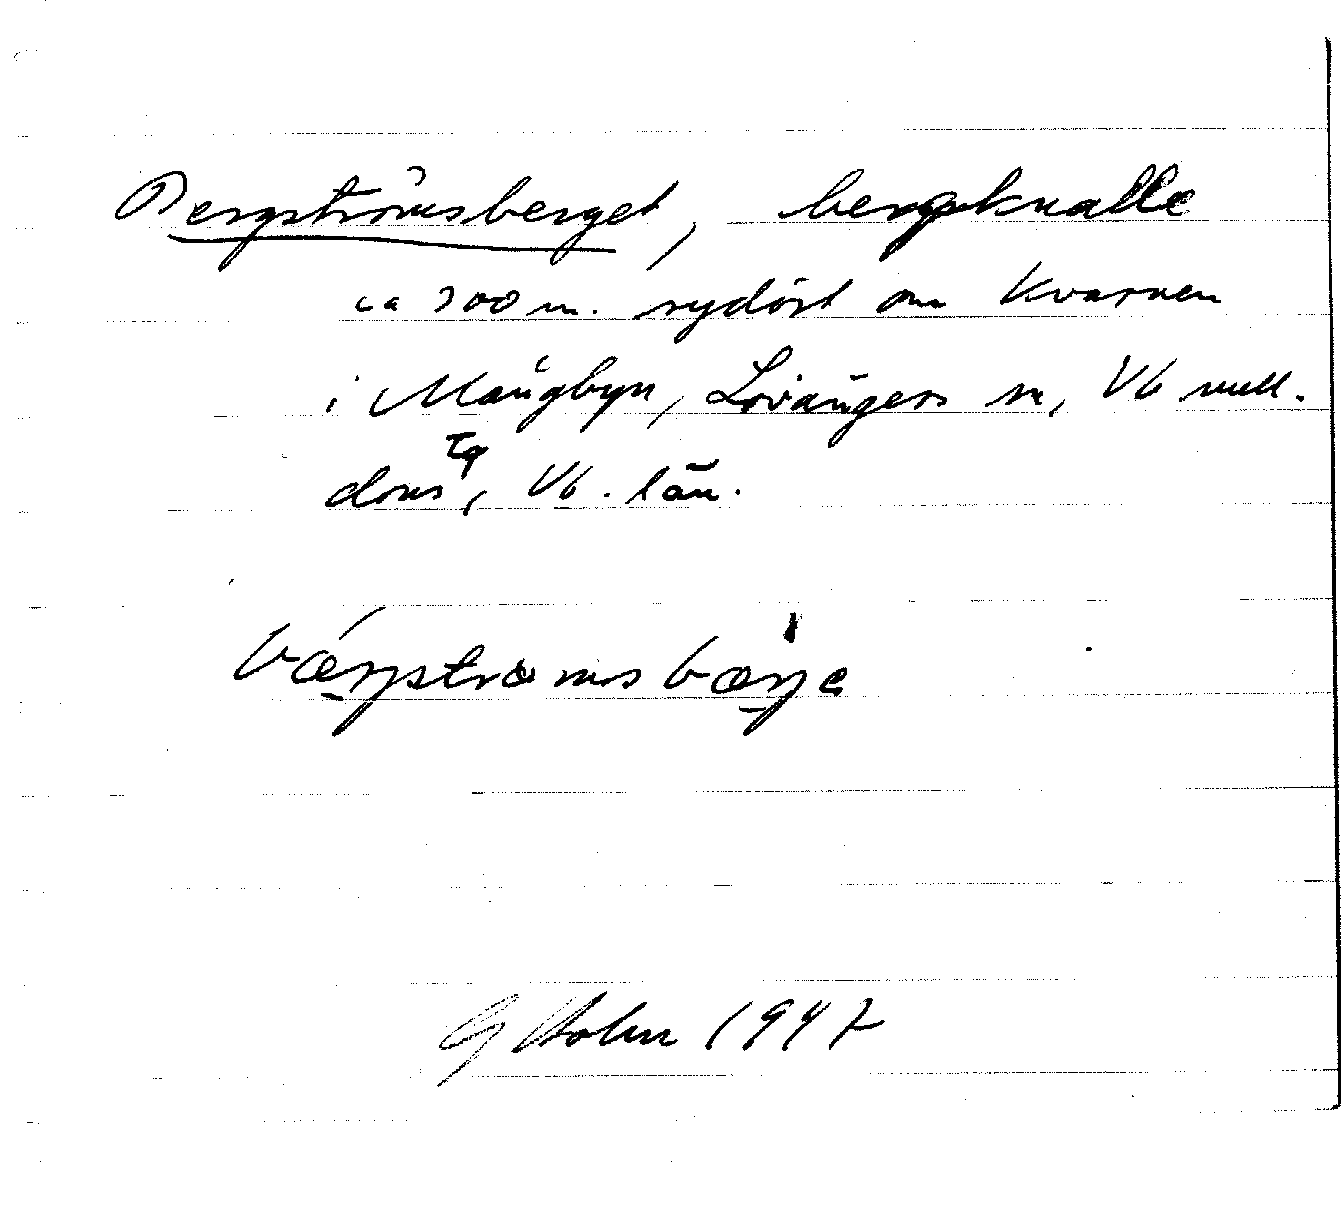 Bergströmsberget, bergsknalle
ca 300 m. sydöst om Kvarnen
i Mångbyn, Lövångers sn, Vb mell.
doms tg, Vb. län.
bærgstrøms bærje
G Holm 1947